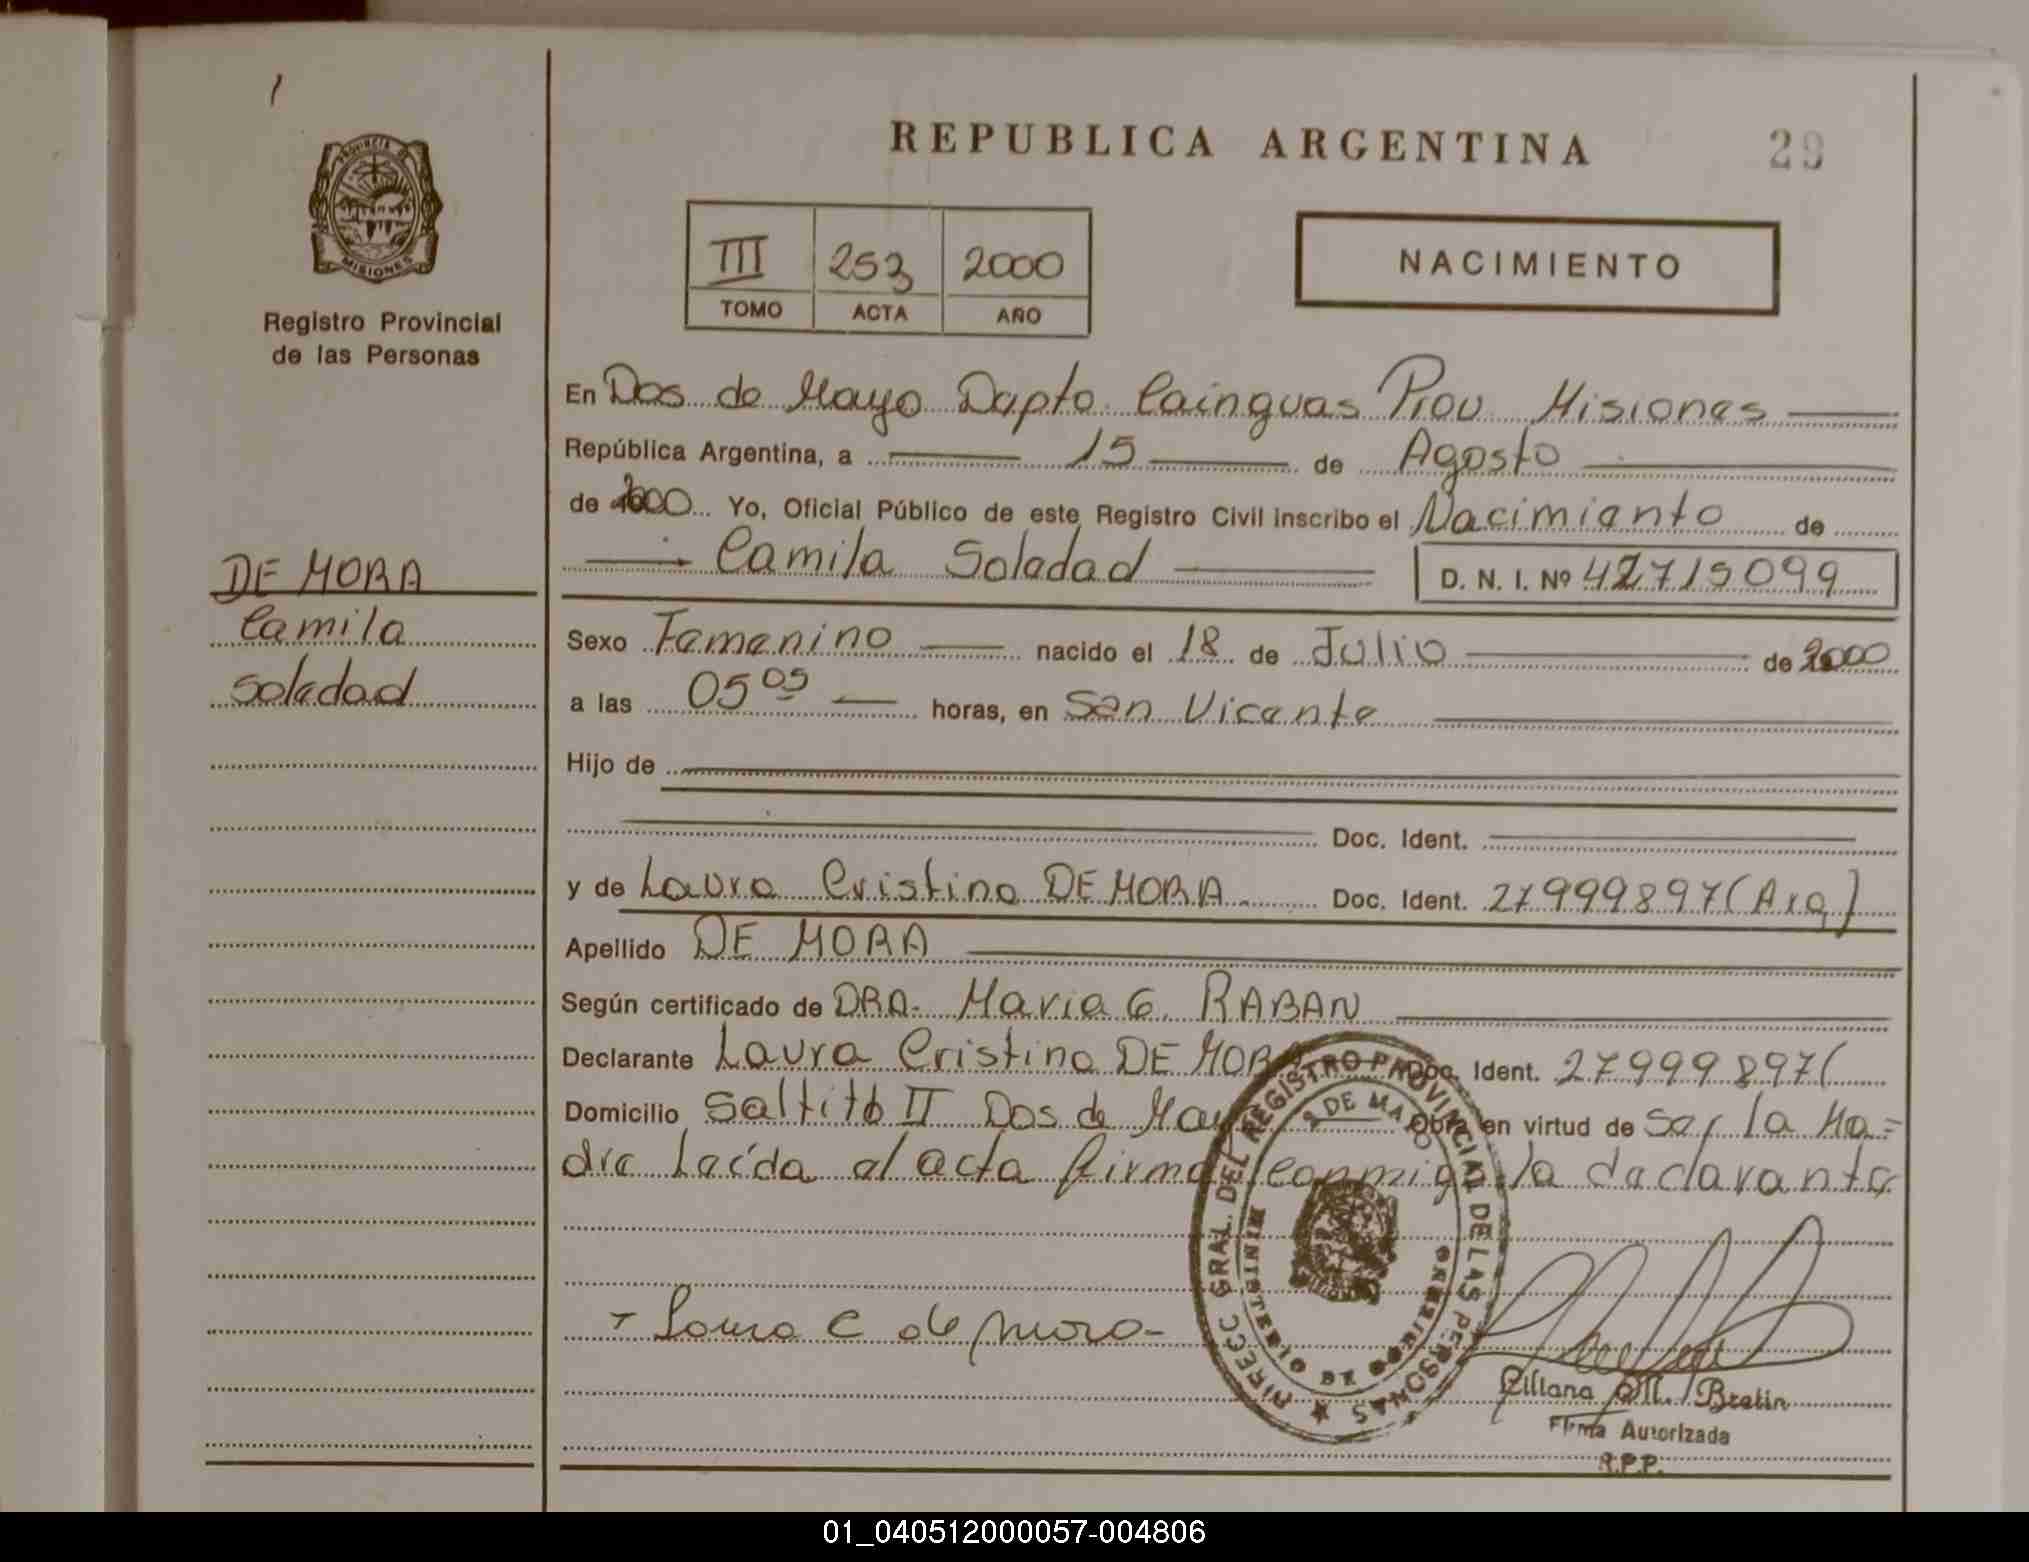 REPUBLICA ARGENTINA
29
PROVINCIA DE
MISIONES
Registro Provincial
de las Personas
III 253 2000
TOMO ACTA AÑO
NACIMIENTO
En Dos de Mayo Dapto. Cainguas Prov Misiones
República Argentina, a 15 de Agosto
de 2000 Yo, Oficial Público de este Registro Civil inscribo el Nacimianto de
Camila Soledad D. N. I. Nº 42715099
DE MORA
Camila
Soledad
Sexo Femenino nacido el 18 de Julio de 2000
a las 05 05 horas, en San Vicente
Hijo de
Doc. Ident.
y de Laura Cristina DE MORA Doc. Ident. 27999897 (Arg)
Apellido DE MORA
Según certificado de DRA. Maria G. RABAN
Declarante Laura Cristina DE MORA Doc. Ident. 27999897(
Domicilio Saltito II Dos de May Obra en virtud de Ser la Ma=
dre Leída el acta firma conmigo la declarante
Laura C de Mora-
DIRECC GRAL. DEL REGISTRO PROVINCIAL DE LAS PERSONAS
2 DE MAYO
MINISTERIO DE GOBIERNO
Liliana M. Bretin
Firma Autorizada
R.P.P.
01_040512000057-004806